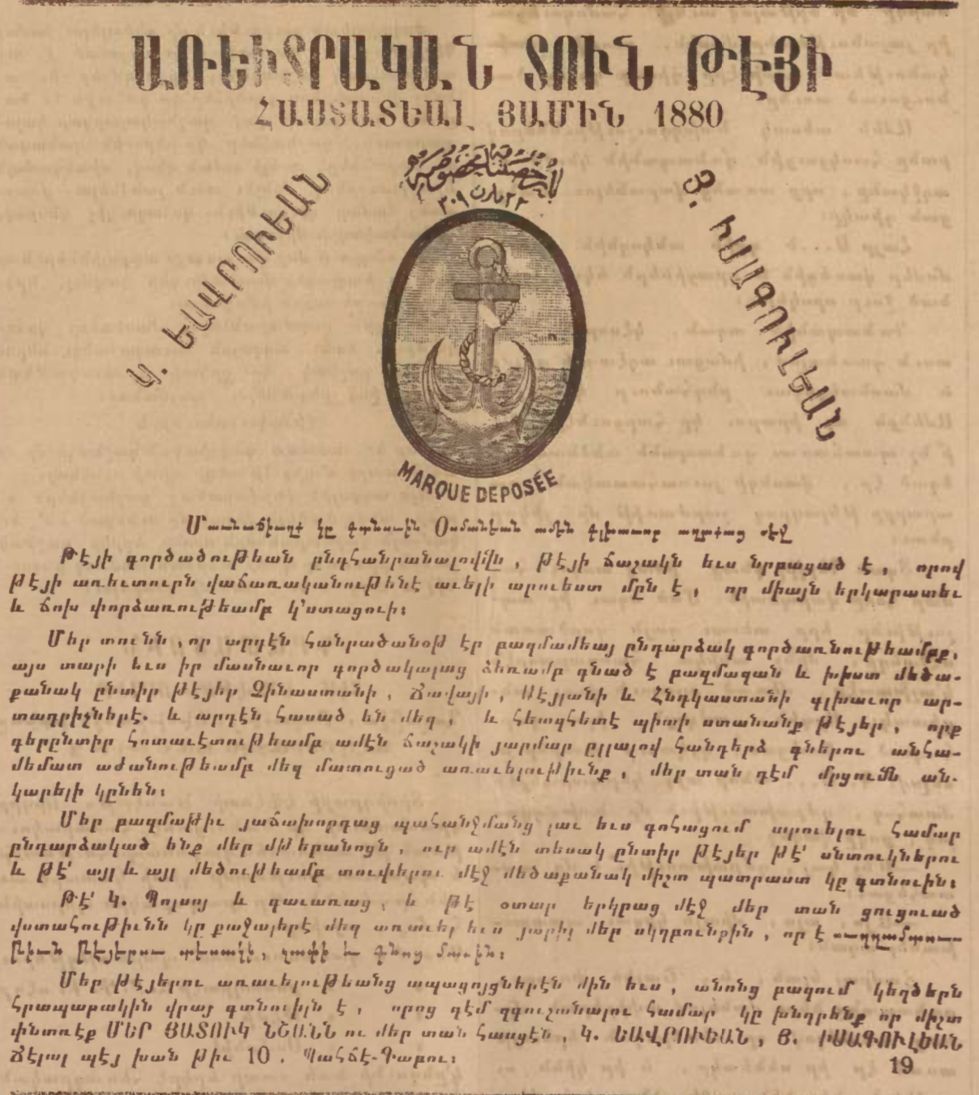 ԱՌԵՒՏՐԱԿԱՆ ՏՈՒՆ ԹԷՅԻ
ՀԱՍՏԱՏԵԱԼ ՅԱՄԻՆ 1880
Կ. ԵԱՎՐՈՒԵԱՆ
Յ. ԻՍԱԳՈՒԼԵԱՆ
٢٢ مارت ٣٠٩
MARQUE DEPOSÉE
Մասնաճիւղք կը գտնուին Օսմանեան ամեն գլխաւոր աղքաց մէջ
Թէյի գործածութեան ընդհանրանալովն, թէյի ճաշակն եւս նրբացած է, որով
թէյի առեւտուրն վաճառականութենէ աւելի արուեստ մըն է, որ միայն երկարատեւ
և ճոխ փորձառութեամբ կ'ստացուի։
Մեր տունն, որ արդէն հանրածանօթ էր բազմամեայ ընդարձակ գործառնութեամբք,
այս տարի եւս իր մասնաւոր գործակալաց ձեռամբ գնած է բազմազան և խիստ մեծա-
քանակ ընտիր թէյեր Չինաստանի, Ճավայի, Սէյլանի և Հնդկաստանի գլխաւոր ար-
տադրիչներէ. և արդէն հասած են մեզ, և հետզհետէ պիտի ստանանք թէյեր, որք
գերընտիր հոտաւէտութեամբ ամէն ճաշակի յարմար ըլլալով հանդերձ գներու անհա-
մեմատ աժանութեամբ մեզ մատուցած առաւելութիւնք, մեր տան դէմ մրցումն ան-
կարելի կընեն։
Մեր բազմաթիւ յաճախորդաց պահանջմանց լաւ եւս գոհացում տրուելու համար
ընդարձակած ենք մեր մթերանոցն, ուր ամէն տեսակ ընտիր թէյեր թէ՛ սնտուկներու
և թէ՛ այլ և այլ մեծութեամբ տուփերու մէջ մեծաքանակ միշտ պատրաստ կը գտնուին։
Թէ՛ Կ. Պոլսոյ և գաւառաց, և թէ օտար երկրաց մէջ մեր տան ցուցուած
վստահութիւնն կը քաջալերէ մեզ առաւել եւս յարիլ մեր սկզբունքին, որ է
թեան թէյերու տեսակի, չափի և գնոց մասին։
Մեր թէյերու առաւելութեանց ապացոյցներէն մին եւս, անոնց բազում կեղծերն
հրապարակին վրայ գտնուիլն է, որոց դէմ զգուշանալու համար կը խնդրենք որ միշտ
փնտռէք ՄԵՐ ՅԱՏՈՒԿ ՆՇԱՆՆ ու մեր տան հասցէն, Կ. ԵԱՎՐՈՒԵԱՆ, Յ. ԻՍԱԳՈՒԼԵԱՆ
Ճէլալ պէյ խան թիւ 10. Պահճէ-Գաբու։
19